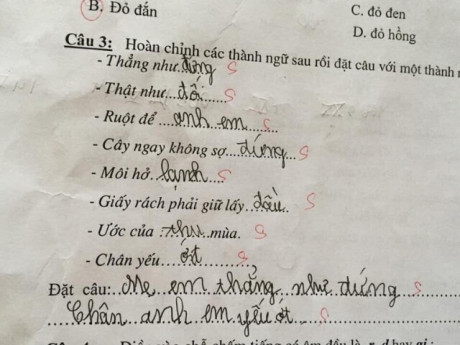 B. Đỏ đắn
C. đỏ đen
D. đỏ hồng
Câu 3: Hoàn chỉnh các thành ngữ sau rồi đặt câu với một thành n
- Thẳng như...đứng S
- Thật như...đối...... S
- Ruột để ...anh em..... S
- Cây ngay không sợ...dứng...S
- Môi hở..lạnh..... S
- Giấy rách phải giữ lấy..đầu.. S
- Ước của :thu..mùa. S
- Chân yếu...ớt........ S
Đặt câu:..Mẹ..em thẳng..như..dứng.. S
...Chân..anh..em.yếu.ớt... S